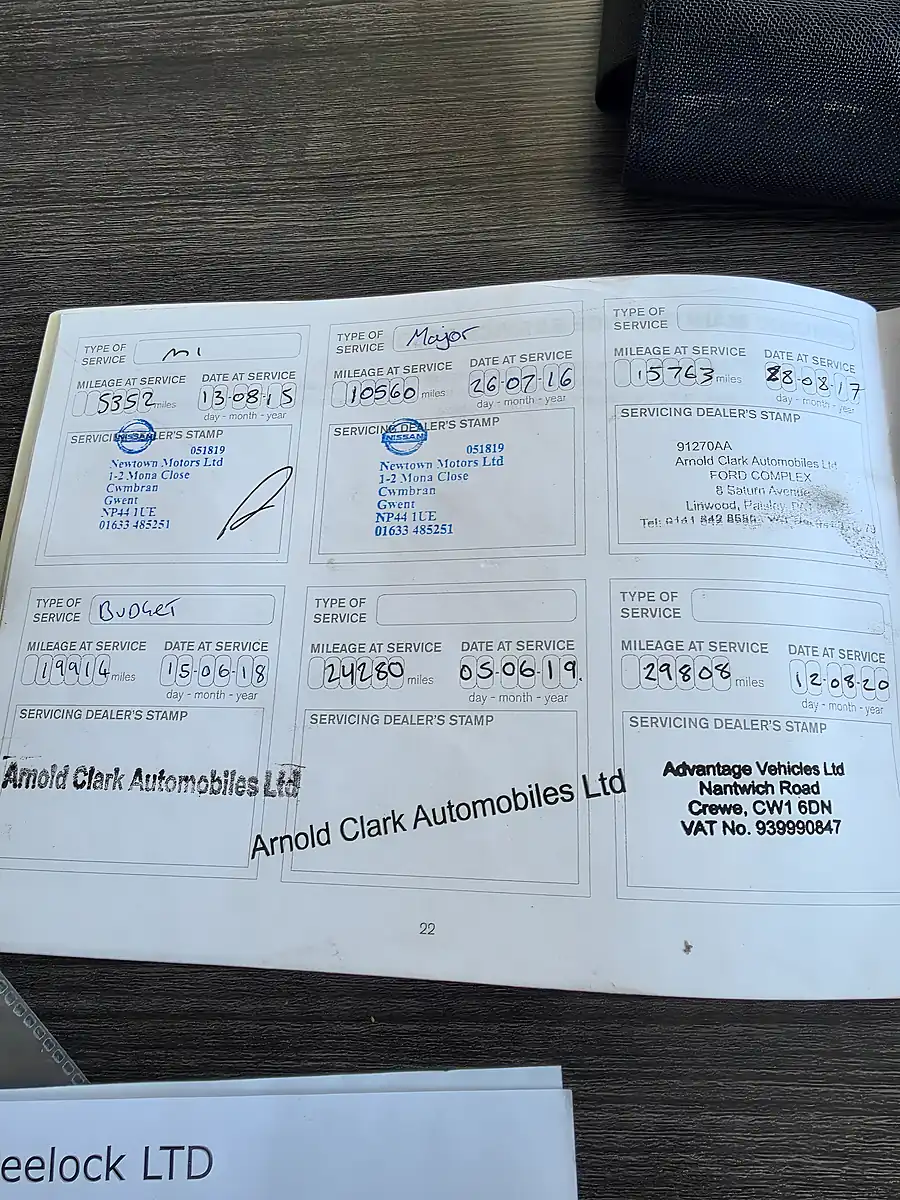 TYPE OF
SERVICE
MI
MILEAGE AT SERVICE
5352 miles
DATE AT SERVICE
13-08-15
day - month - year
SERVICING DEALER'S STAMP
NISSAN
051819
Newtown Motors Ltd
1-2 Mona Close
Cwmbran
Gwent
NP44 1UE
01633 485251
TYPE OF
SERVICE
Major
MILEAGE AT SERVICE
10560 miles
DATE AT SERVICE
26-07-16
day - month - year
SERVICING DEALER'S STAMP
NISSAN
051819
Newtown Motors Ltd
1-2 Mona Close
Cwmbran
Gwent
NP44 1UE
01633 485251
TYPE OF
SERVICE
MILEAGE AT SERVICE
15763 miles
DATE AT SERVICE
28-08-17
day - month - year
SERVICING DEALER'S STAMP
91270AA
Arnold Clark Automobiles Ltd
FORD COMPLEX
8 Saturn Avenue
Linwood, Paisley,
Tel: 0141
TYPE OF
SERVICE
BUDGET
MILEAGE AT SERVICE
19914 miles
DATE AT SERVICE
15-06-18
day - month - year
SERVICING DEALER'S STAMP
Arnold Clark Automobiles Ltd
TYPE OF
SERVICE
MILEAGE AT SERVICE
24280 miles
DATE AT SERVICE
05-06-19.
day - month - year
SERVICING DEALER'S STAMP
Arnold Clark Automobiles Ltd
TYPE OF
SERVICE
MILEAGE AT SERVICE
29808 miles
DATE AT SERVICE
12-08-20
day - month - year
SERVICING DEALER'S STAMP
Advantage Vehicles Ltd
Nantwich Road
Crewe, CW1 6DN
VAT No. 939990847
22
eelock LTD